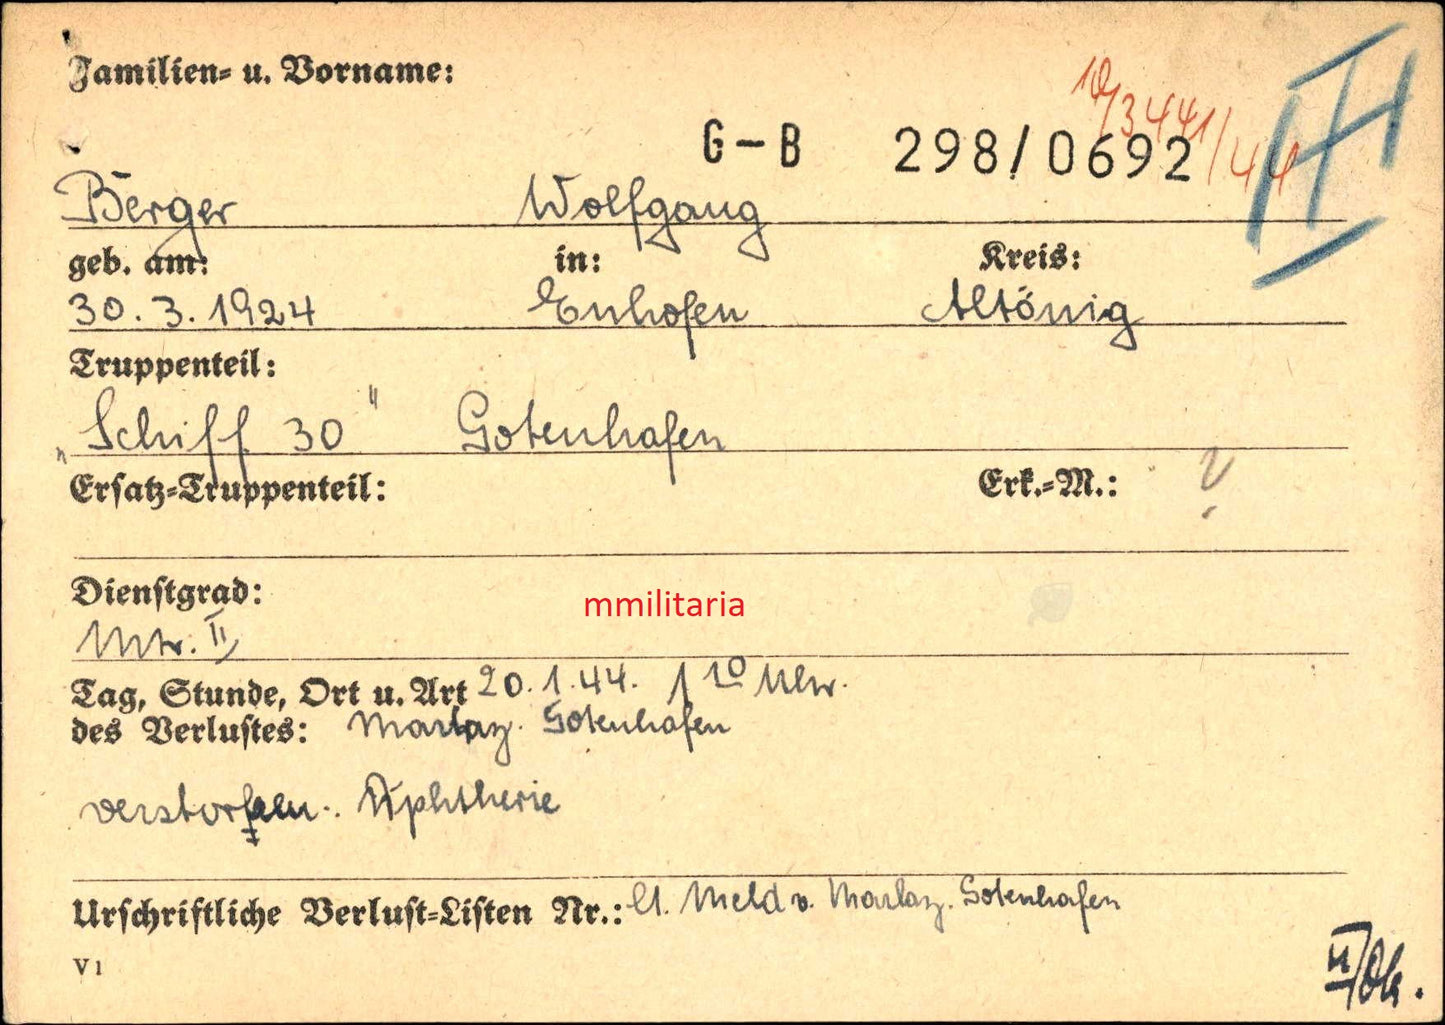 Familien- u. Vorname:
10/3441/44
G-B 298/0692
Berger Wolfgang
geb. am: in: Kreis:
30.3.1924 Enhofen Altönig
Truppenteil:
„Schiff 30" Gotenhafen
Ersatz-Truppenteil: Erk.-M.: ?
Dienstgrad:
mmilitaria
Mtr. II
Tag, Stunde, Ort u. Art 20.1.44. 1 10 Uhr.
des Verlustes: Marlaz. Gotenhafen
verstorben. Diphtherie
Urschriftliche Verlust-Listen Nr.: lt. Meld v. Marlaz. Gotenhafen
V1